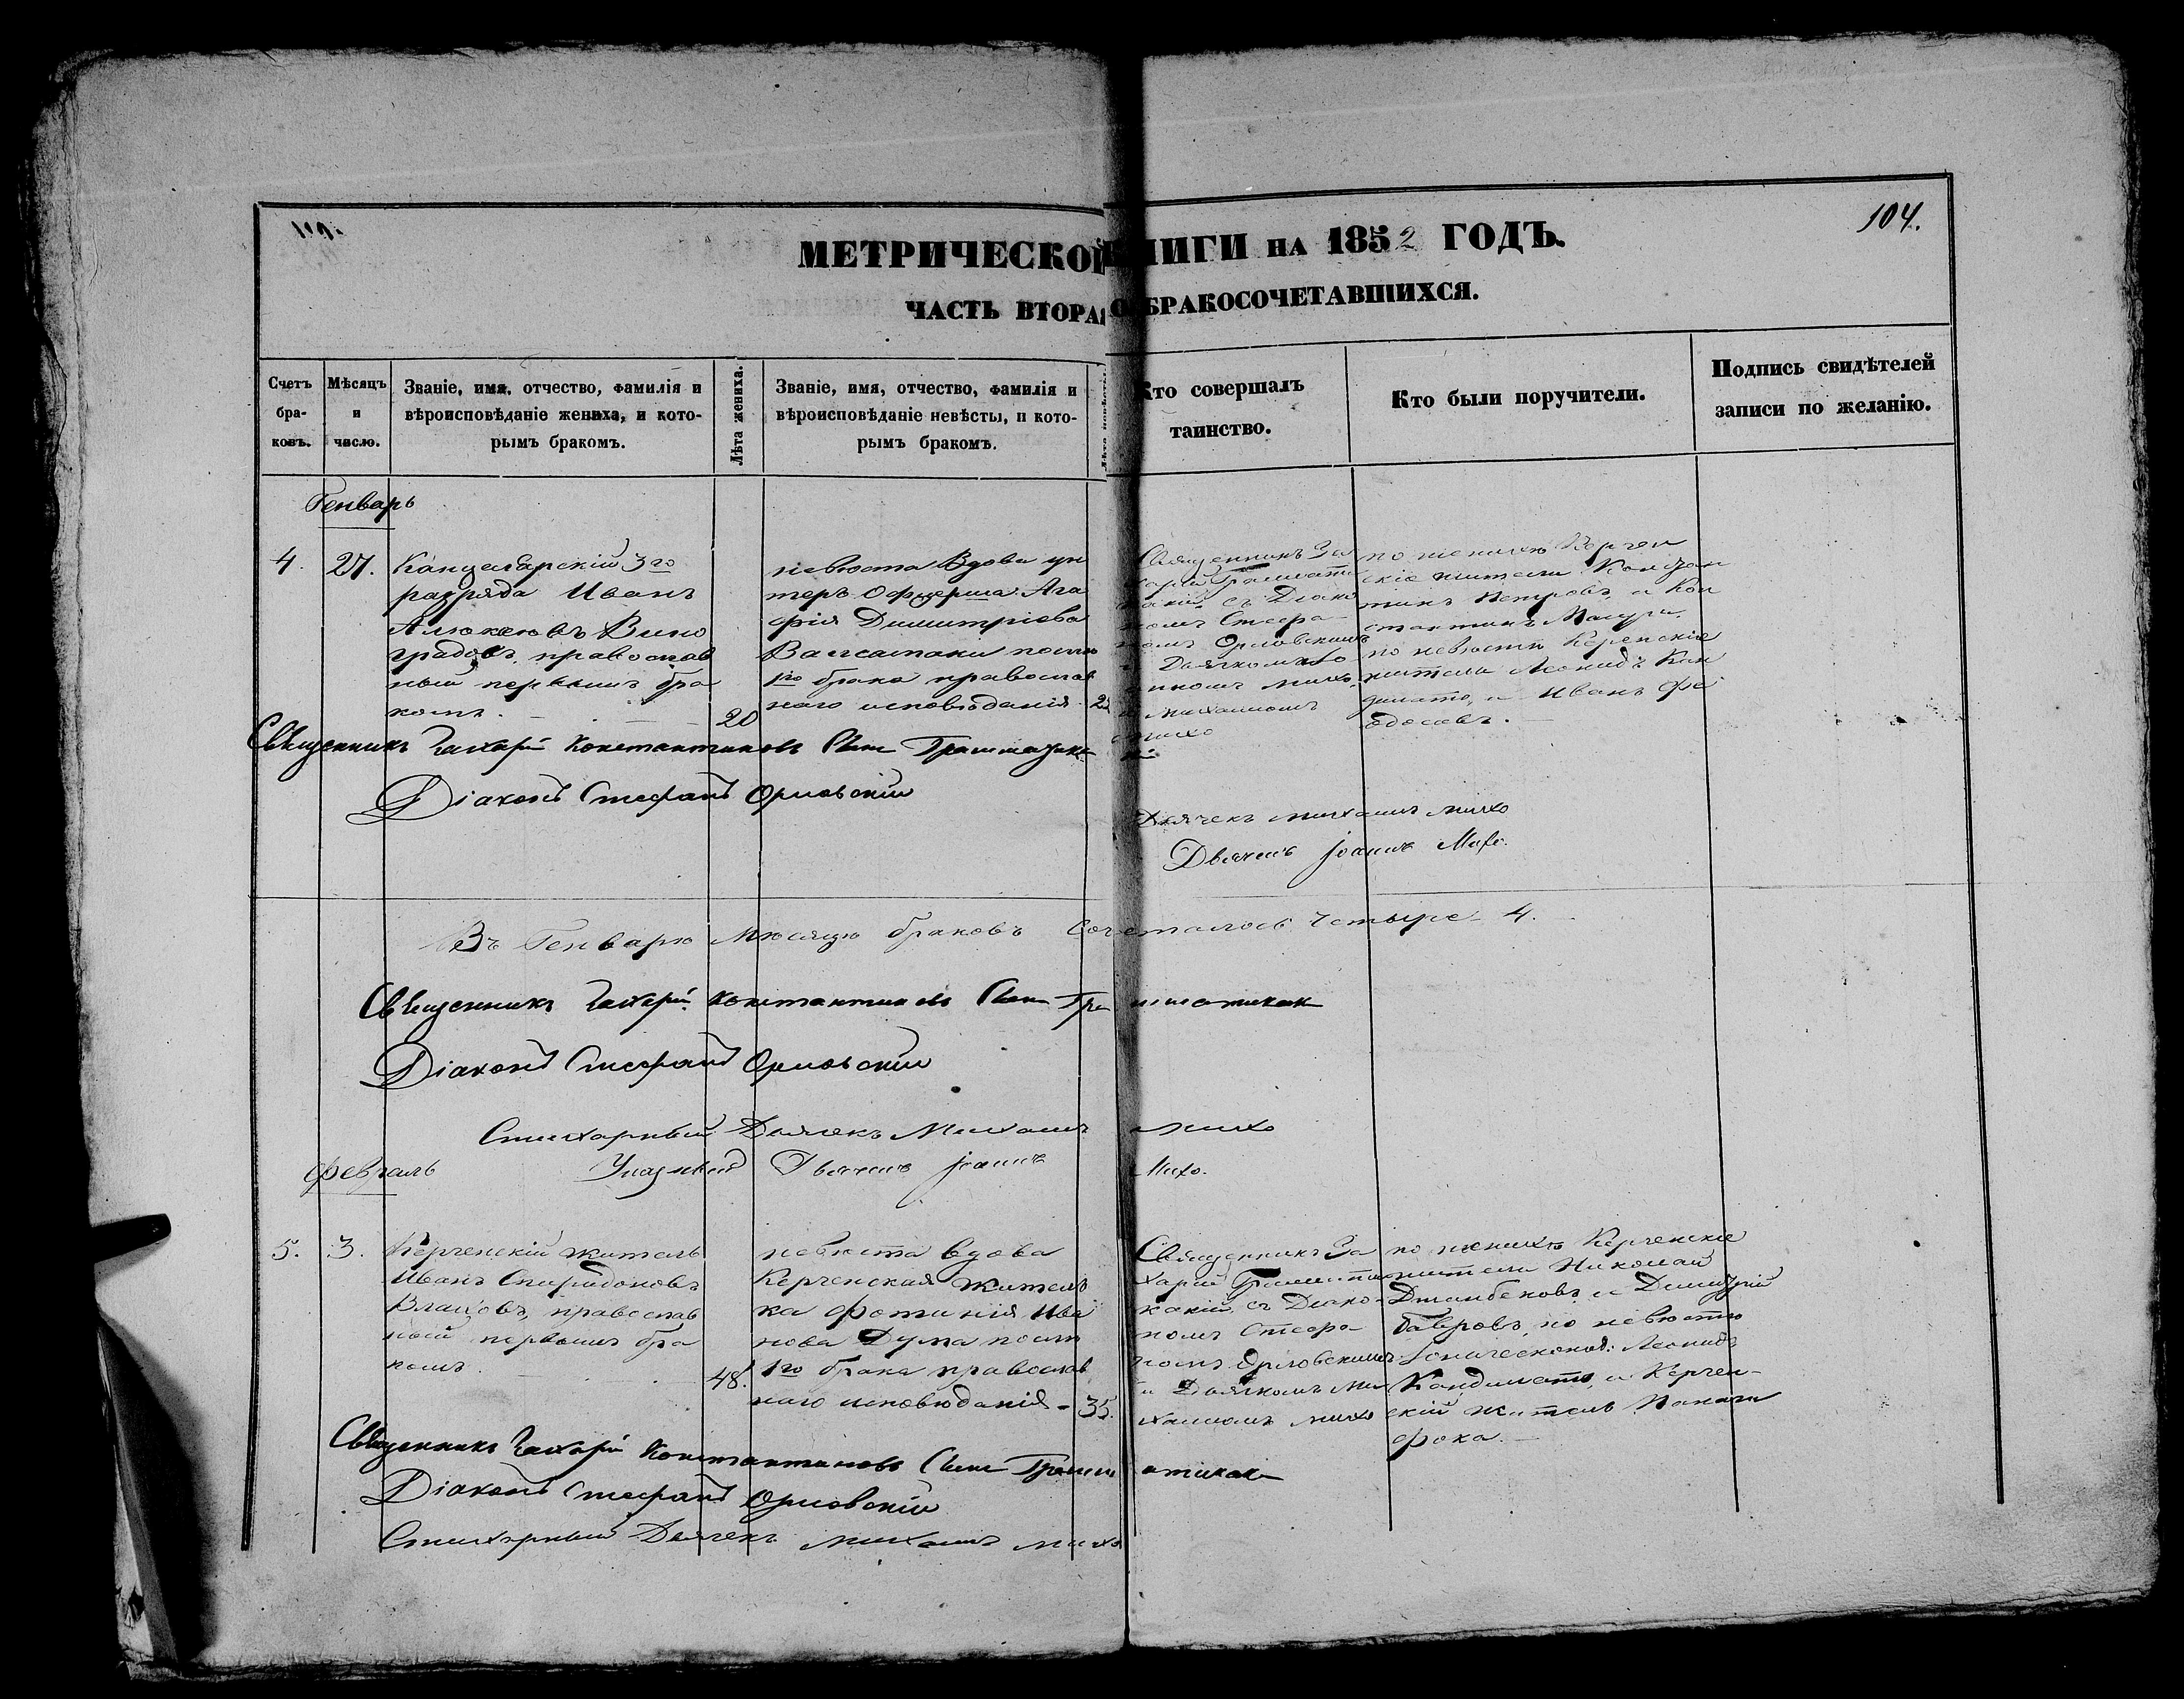 104.
МЕТРИЧЕСКОЙ КНИГИ НА 1852 ГОДЪ.
ЧАСТЬ ВТОРАЯ О БРАКОСОЧЕТАВШИХСЯ.
Счетъ
бра-
ковъ.
Мѣсяцъ
и
число.
Званіе, имя, отчество, фамилія и
вѣроисповѣданіе жениха, и кото-
рымъ бракомъ.
Лѣта жениха.
Званіе, имя, отчество, фамилія и
вѣроисповѣданіе невѣсты, и кото-
рымъ бракомъ.
Лѣта невѣсты.
Кто совершалъ
таинство.
Кто были поручители.
Подпись свидѣтелей
записи по желанію.
Генварь
4.
27.
Канцелярскій 3го
разряда Иванъ
Алексѣевъ Вино
градовъ, православ
ный первымъ бра
комъ.
20
невѣста Вдова ун
теръ Офицерша Ага
фія Димитріева
послѣ
1го брака православ
наго исповѣданія
Священникъ За
харій Граммати
какій, съ Діако
номъ Стефа
номъ Орловскимъ
и Дьячкомъ
Михо
Михаиломъ
Михо
по женихѣ Керчен
скіе жители Констан
тинъ Петровъ, и Кон
стантинъ
по невѣсти Керченскіе
жители Леонидъ Кан
дилато, и Иванъ Фе
одосовъ.
Священникъ Захарій Константиновъ Сынъ Грамматикаки
Діаконъ Стефанъ Орловскій
Дьячекъ Михаилъ Михо
Дьячекъ Іоаннъ Михо.
Въ Генварѣ Мѣсяцѣ браковъ Сочеталось Четыре 4.
Священникъ Захарій Константиновъ Сынъ Грамматикаки
Діаконъ Стефанъ Орловскій
Стихарный Дьячекъ Михаилъ Михо
Указный Дьячекъ Іоаннъ Михо.
Февраль
5.
3.
Керченскій житель
Иванъ Спиридоновъ
Влаховъ, православ
ный первымъ бра
комъ.
48.
невѣста вдова
Керченская житель
ка Фотинія Ива
нова Дума послѣ
1го брака православ
наго исповѣданія
35.
Священникъ За
харій Граммати
какій, съ Діако-
номъ Стефа-
номъ Орловскимъ
и Дьячкомъ Ми
хаиломъ Михо
по женихѣ Керченскіе
жители Николай
Джанбековъ, и Димитрій
Бавровъ, по невѣсти
Леонидъ
Кандилато, и Керчен-
скій житель Панаги
Фока.
Священникъ Захарій Константиновъ Сынъ Грамматикаки
Діаконъ Стефанъ Орловскій
Стихарный Дьячекъ Михаилъ Михо